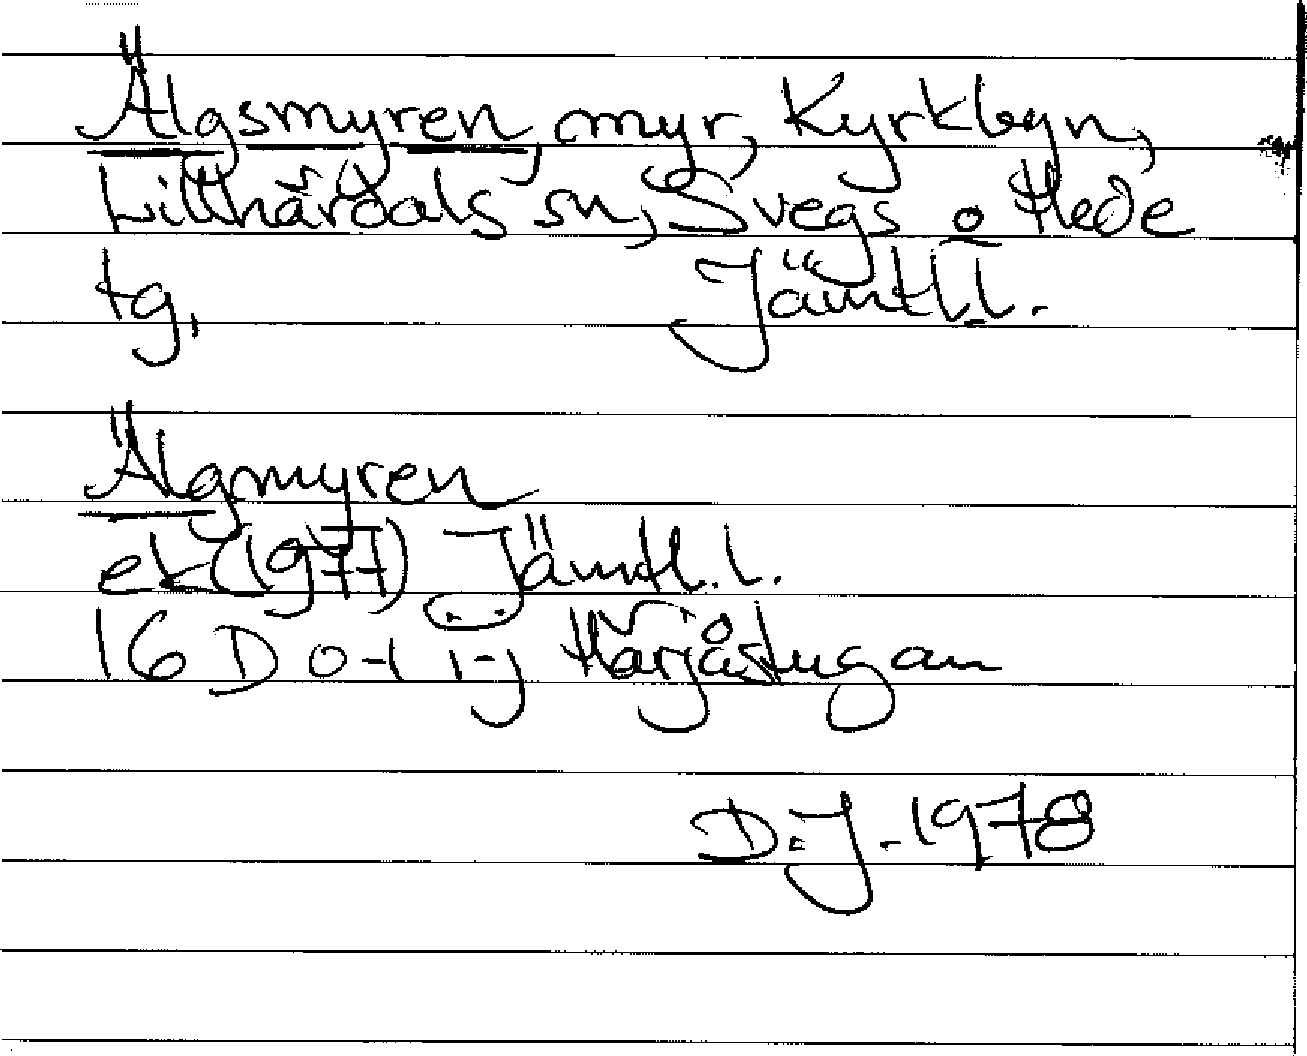 Älgsmyren, myr, Kyrkbyn,
Lillhärdals sn, Svegs o Hede
tg, Jämtl.l.
Älgmyren
ek (1977) Jämtl. l.
16 D 0-1 i-j Härjåstugan
D.J. 1978